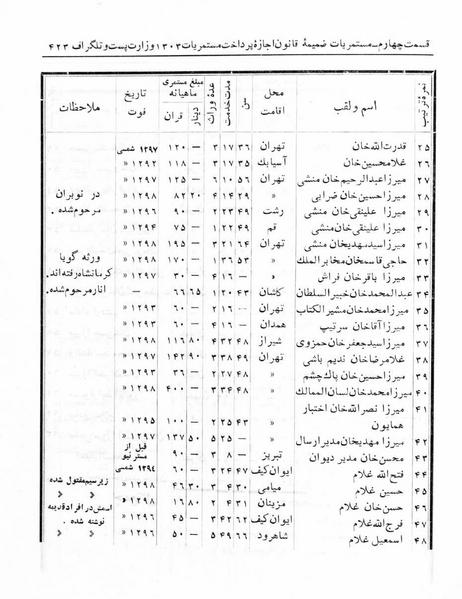 قسمت چهارم ـ مستمریات ضمیمهٔ قانون اجازهٔ پرداخت مستمریات ۱۳۰۳ وزارت پست و تلگراف ۴۲۳
نمرهٔ ترتیب اسم ولقب محل اقامت سن مدت خدمت عدهٔ وراث مبلغ مستمری ماهیانه دینار قران تاریخ فوت ملاحظات
۲۵ قدرت الله خان تهران ۳۶ ۱۷ ۳ — ۱۲۰ ۱۲۹۷ شمسی
۲۶ غلامحسین خان آسیابك ۳۵ ۱۷ ۳ — ۱۱۸ ۱۲۹۲ »
۲۷ میرزا عبدالرحیم خان منشی تهران ۵۶ ۱۰ ۶ — ۱۲۵ ۱۲۹۷ »
۲۸ میرزا حسین خان ضرابی » ۲۹ ۱۴ ۴ ۲۰ ۸۲ ۱۲۹۸ » در نوبران
۲۹ میرزا علینقی خان منشی رشت ۴۹ ۲۳ ۲ — ۹۰ ۱۲۹۶ » مرحوم شده .
۳۰ میرزا علینقی خان منشی قم ۴۹ ۲۲ ۱ — ۷۵ ۱۲۹۴ »
۳۱ میرزا سید مهدیخان منشی تهران ۶۴ ۲۱ ۳ — ۱۹۵ ۱۲۹۸ »
۳۲ حاجی قاسمخان مخابر الملك » ۵۳ ۳۶ ۱ — ۱۷۰ ۱۲۹۸ » ورثه گویا
۳۳ میرزا باقرخان فراش » — ۱۶ ۴ — ۳۰ ۱۲۹۷ » کرمانشاه رفته‌اند .
۳۴ عبدالمحمدخان خبیر السلطان کاشان ۴۳ ۲۰ ۱ ۶۵ ۶۶ — انار مرحوم شده .
۳۵ میرزا محمدخان مشیر الکتاب تهران — ۱۶ ۲ — ۶۰ ۱۲۹۳ »
۳۶ میرزا آقاخان سرتیپ همدان — ۱۶ ۴ — ۶۰ ۱۲۹۳ »
۳۷ میرزا سید جعفرخان حمزوی شیراز ۴۸ ۳۲ ۴ ۸۰ ۱۱۶ ۱۲۹۸ »
۳۸ غلامرضاخان ندیم باشی تهران ۴۹ ۳۸ ۳ ۹۰ ۱۴۲ ۱۲۹۷ »
۳۹ میرزا حسین خان پاك چشم »
۴۰ میرزا محمدخان لسان الممالك » ۴۸ ۳۴ ۳ — ۴۰۰ ۱۲۹۸ »
۴۱ میرزا نصر الله خان اختیار
همایون » ۴۳ ۲۵ ۲ — ۱۰۰ ۱۲۹۵ »
۴۲ میرزا مهدیخان مدیر ارسال » — ۲۵ ۵ ۵۰ ۱۳۷ ۱۲۹۷ »
۴۳ محسن خان مدیر دیوان تبریز — ۸ ۳ — ۹۰ قبل از
۴۴ فتح الله غلام ایوان کیف ۴۷ ۲۴ ۳ — ۶۰ ۱۲۹۴ شمسی
۴۵ حسین غلام میامی ۳۰ ۴ ۳ ۳۰ ۴۶ ۱۲۹۸ » زیر سیم مقتول شده
۴۶ حسن خان غلام مزینان ۳۱ ۴ ۲ ۸۰ ۱۶ ۱۲۹۸ » » »
۴۷ فرج الله غلام ایوان کیف ۶۲ ۴۲ ۳ — ۴۵ ۱۲۹۶ »
۴۸ اسمعیل غلام شاهرود ۶۶ ۴۹ ۵ — ۵۰ ۱۲۹۶ » نوشته شده .